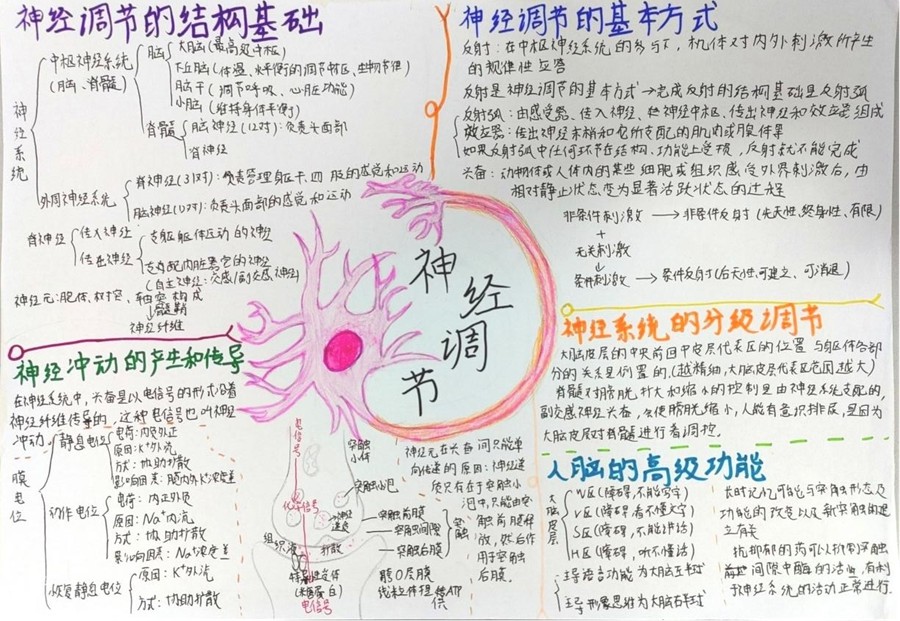 神经调节的结构基础
神经系统
中枢神经系统
(脑、脊髓)
脑
大脑(最高级中枢)
下丘脑(体温、水平衡的调节中枢、生物节律)
脑干(调节呼吸、心脏功能)
小脑(维持身体平衡)
脊髓
脑神经(12对):负责头面部
脊神经
外周神经系统
脊神经(31对):负责管理躯干、四肢的感觉和运动
脑神经(12对):负责头面部的感觉和运动
脊神经
传入神经
传出神经
支配躯体运动的神经
支配内脏器官的神经
(自主神经:交感/副交感神经)
神经元:胞体、树突、轴突构成
髓鞘
神经纤维
神经冲动的产生和传导
在神经系统中,兴奋是以电信号的形式沿着
神经纤维传导的,这种电信号也叫神经
冲动
膜电位
静息电位
电荷:内负外正
原因:K⁺外流
方式:协助扩散
影响因素:膜内外K⁺浓度差
动作电位
电荷:内正外负
原因:Na⁺内流
方式:协助扩散
影响因素:Na⁺浓度差
恢复静息电位
原因:K⁺外流
方式:协助扩散
神经调节
电信号
突触小体
突触小泡
化学信号
神经递质
突触前膜
突触间隙
突触后膜
突触
组织液
扩散
特异性受体
(糖蛋白)
电信号
线粒体提供ATP
神经元在兴奋间只能单
向传递的原因:神经递
质只存在于突触小
泡中,只能由突
触前膜释
放,然后作
用于突触
后膜。
神经调节的基本方式
反射:在中枢神经系统的参与下,机体对内外刺激所产生
的规律性应答
反射是神经调节的基本方式→完成反射的结构基础是反射弧
反射弧:由感受器、传入神经、神经中枢、传出神经和效应器组成
效应器:传出神经末梢和它所支配的肌肉或腺体等
如果反射弧中任何环节在结构、功能上受损,反射就不能完成
兴奋:动物体或人体内的某些细胞或组织感受外界刺激后,由
相对静止状态变为显著活跃状态的过程
非条件刺激→非条件反射(先天性、终身性、有限)
+
无关刺激
↓
条件刺激→条件反射(后天性、可建立、可消退)
神经系统的分级调节
大脑皮层的中央前回中皮层代表区的位置与躯体各部
分的关系是倒置的,(越精细,大脑皮层代表区范围越大)
脊髓对膀胱扩大和缩小的控制是由神经系统支配的,
副交感神经兴奋,会使膀胱缩小,人能有意识排尿,是因为
大脑皮层对脊髓进行着调控。
人脑的高级功能
大脑皮层
W区(障碍,不能写字)
V区(障碍,看不懂文字)
S区(障碍,不能讲话)
H区(障碍,听不懂话)
主导语言功能为大脑左半球
主导形象思维为大脑右半球
长时记忆可能与突触形态及
功能的改变以及新突触的建
立有关
抗抑郁的药可以抑制突触
间隙中酶的活性,有利
于神经系统的活动正常进行.